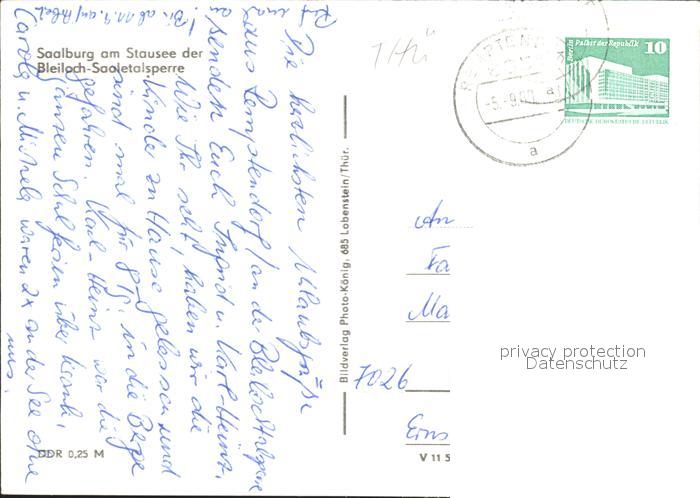 Saalburg am Stausee der
Bleiloch-Saaletalsperre
Die herzlichsten Urlaubsgrüße
aus Remptendorf / an der Bleilochtalsperre
senden Euch Ingrid u. Karl-Heinz.
Wie Ihr seht, haben wir die
Kinder zu Hause gelassen und
sind mal für 8 Tg. in die Berge
gefahren. Karl-Heinz war die
ganzen Schulferien über krank,
Carola u. Michele waren 2x an der See ohne
uns.
Bis ab 11.9. auf Arbeit
DDR 0,25 M
Bildverlag Photo-König, 685 Lobenstein/Thür.
V 11 5
-5.-9.80
a
Berlin Palast der Republik
10
DEUTSCHE DEMOKRATISCHE REPUBLIK
An
Fa
Ma
7026
privacy protection
Datenschutz